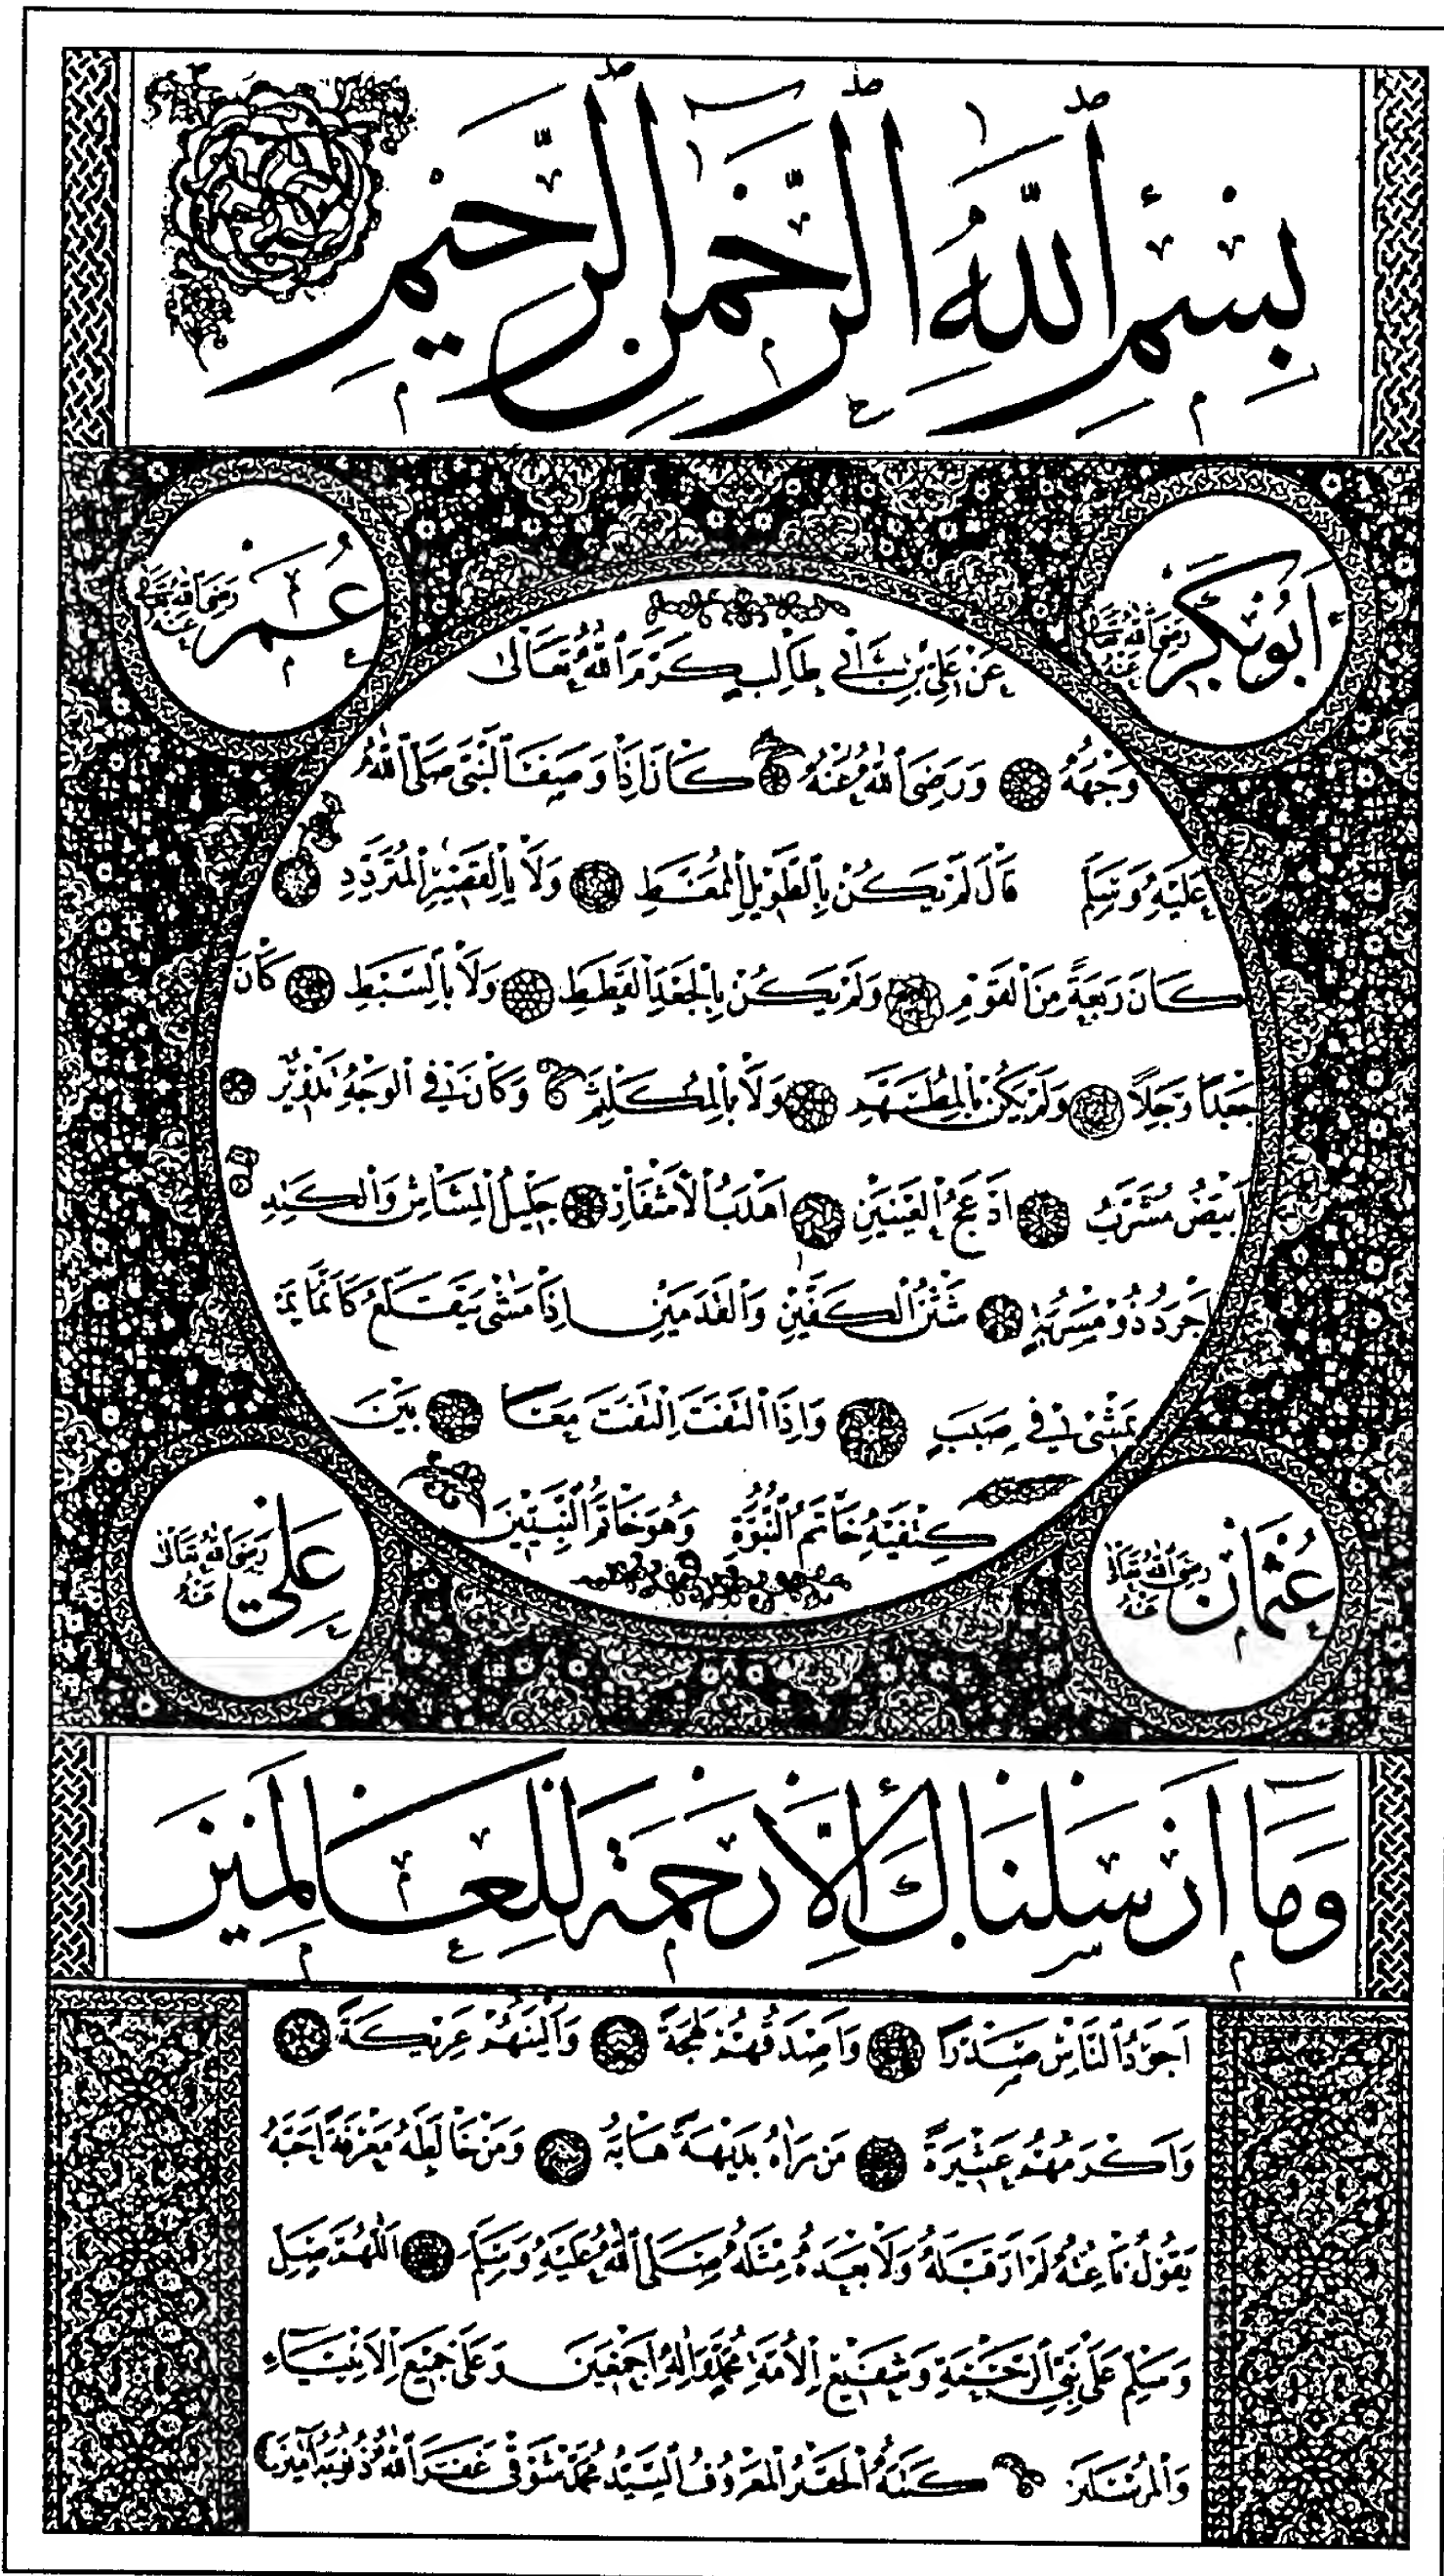 بِسْمِ ٱللّٰهِ ٱلرَّحْمٰنِ ٱلرَّحِيمِ
أَبُو بَكْرٍ رَضِيَ ٱللّٰهُ تَعَالٰى عَنْهُ
عُمَرُ رَضِيَ ٱللّٰهُ تَعَالٰى عَنْهُ
عَنْ عَلِيِّ بْنِ أَبِي طَالِبٍ كَرَّمَ ٱللّٰهُ تَعَالٰى
وَجْهَهُ وَرَضِيَ ٱللّٰهُ عَنْهُ كَانَ إِذَا وَصَفَ ٱلنَّبِيَّ صَلَّى ٱللّٰهُ
عَلَيْهِ وَسَلَّمَ قَالَ لَمْ يَكُنْ بِٱلطَّوِيلِ ٱلْمُمَغَّطِ وَلَا بِٱلْقَصِيرِ ٱلْمُتَرَدِّدِ
كَانَ رَبْعَةً مِنَ ٱلْقَوْمِ وَلَمْ يَكُنْ بِٱلْجَعْدِ ٱلْقَطِطِ وَلَا بِٱلسَّبْطِ كَانَ
جَعْدًا رَجِلًا وَلَمْ يَكُنْ بِٱلْمُطَهَّمِ وَلَا بِٱلْمُكَلْثَمِ وَكَانَ فِي ٱلْوَجْهِ تَدْوِيرٌ
أَبْيَضُ مُشْرَبٌ أَدْعَجُ ٱلْعَيْنَيْنِ أَهْدَبُ ٱلْأَشْفَارِ جَلِيلُ ٱلْمُشَاشِ وَٱلْكَتِدِ
أَجْرَدُ ذُو مَسْرُبَةٍ شَثْنُ ٱلْكَفَّيْنِ وَٱلْقَدَمَيْنِ إِذَا مَشٰى يَتَقَلَّعُ كَأَنَّمَا
يَمْشِي فِي صَبَبٍ وَإِذَا ٱلْتَفَتَ ٱلْتَفَتَ مَعًا بَيْنَ
كَتِفَيْهِ خَاتَمُ ٱلنُّبُوَّةِ وَهُوَ خَاتَمُ ٱلنَّبِيِّينَ
عُثْمَانُ رَضِيَ ٱللّٰهُ تَعَالٰى عَنْهُ
عَلِيٌّ رَضِيَ ٱللّٰهُ تَعَالٰى عَنْهُ
وَمَا أَرْسَلْنَاكَ إِلَّا رَحْمَةً لِلْعَالَمِينَ
أَجْوَدُ ٱلنَّاسِ صَدْرًا وَأَصْدَقُهُمْ لَهْجَةً وَأَلْيَنُهُمْ عَرِيكَةً
وَأَكْرَمُهُمْ عَشِيرَةً مَنْ رَآهُ بَدِيهَةً هَابَهُ وَمَنْ خَالَطَهُ مَعْرِفَةً أَحَبَّهُ
يَقُولُ نَاعِتُهُ لَمْ أَرَ قَبْلَهُ وَلَا بَعْدَهُ مِثْلَهُ صَلَّى ٱللّٰهُ عَلَيْهِ وَسَلَّمَ ٱللّٰهُمَّ صَلِّ
وَسَلِّمْ عَلٰى نَبِيِّ ٱلرَّحْمَةِ وَشَفِيعِ ٱلْأُمَّةِ مُحَمَّدٍ وَآلِهِ أَجْمَعِينَ وَعَلٰى جَمِيعِ ٱلْأَنْبِيَاءِ
وَٱلْمُرْسَلِينَ كَتَبَهُ ٱلْحَقِيرُ ٱلْمَعْرُوفُ ٱلسَّيِّدُ مُحَمَّدْ شَوْقِي غَفَرَ ٱللّٰهُ ذُنُوبَهُ آمِينَ